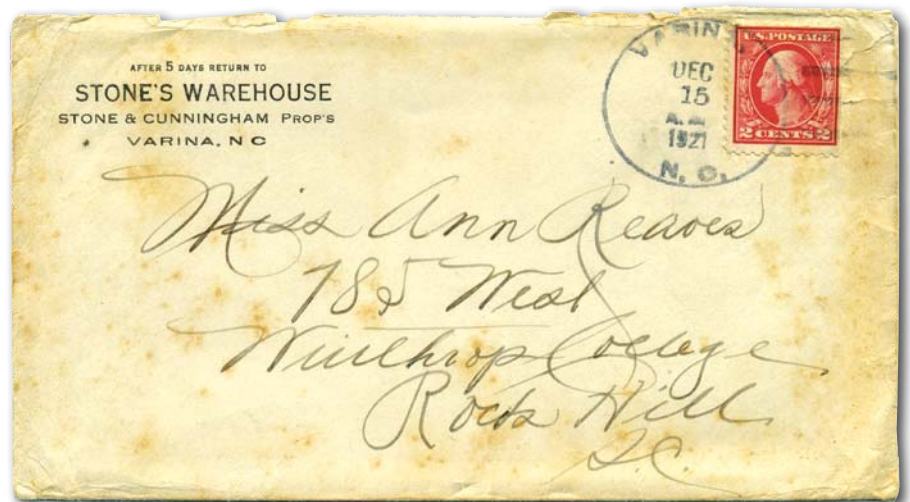 AFTER 5 DAYS RETURN TO
STONE'S WAREHOUSE
STONE & CUNNINGHAM PROP'S
VARINA, N C
VARINA
DEC
15
A.M.
1921
N. C.
U.S. POSTAGE
2 CENTS 2
Miss Ann Reaves
785 West
Winthrop College
Rock Hill
S.C.